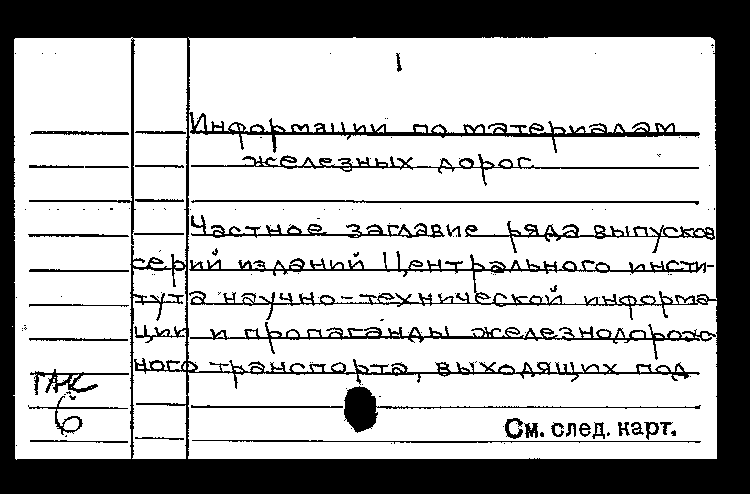 1
Информации по материалам
железных дорог
Частное заглавие ряда выпусков
серий изданий Центрального инсти-
тута научно-технической информа-
ции и пропаганды железнодорож-
ного транспорта, выходящих под
ГАК
6
См. след. карт.